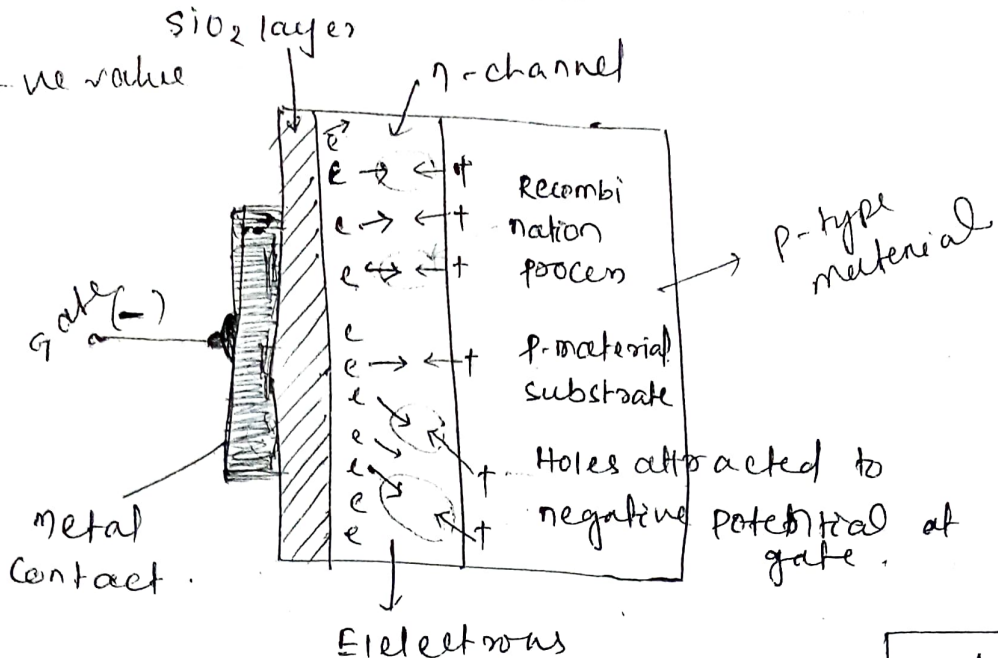 SiO2 layer
-ve value
n-channel
e
e → ← +
e → ← +
e ↔ ← +
e
e → ← +
e
e
e
e
e
+
+
Recombi
nation
proces
p-type
material
Gate (-)
p-material
substrate
Holes attracted to
negative potential at
gate.
Metal
Contact.
Elelectrons